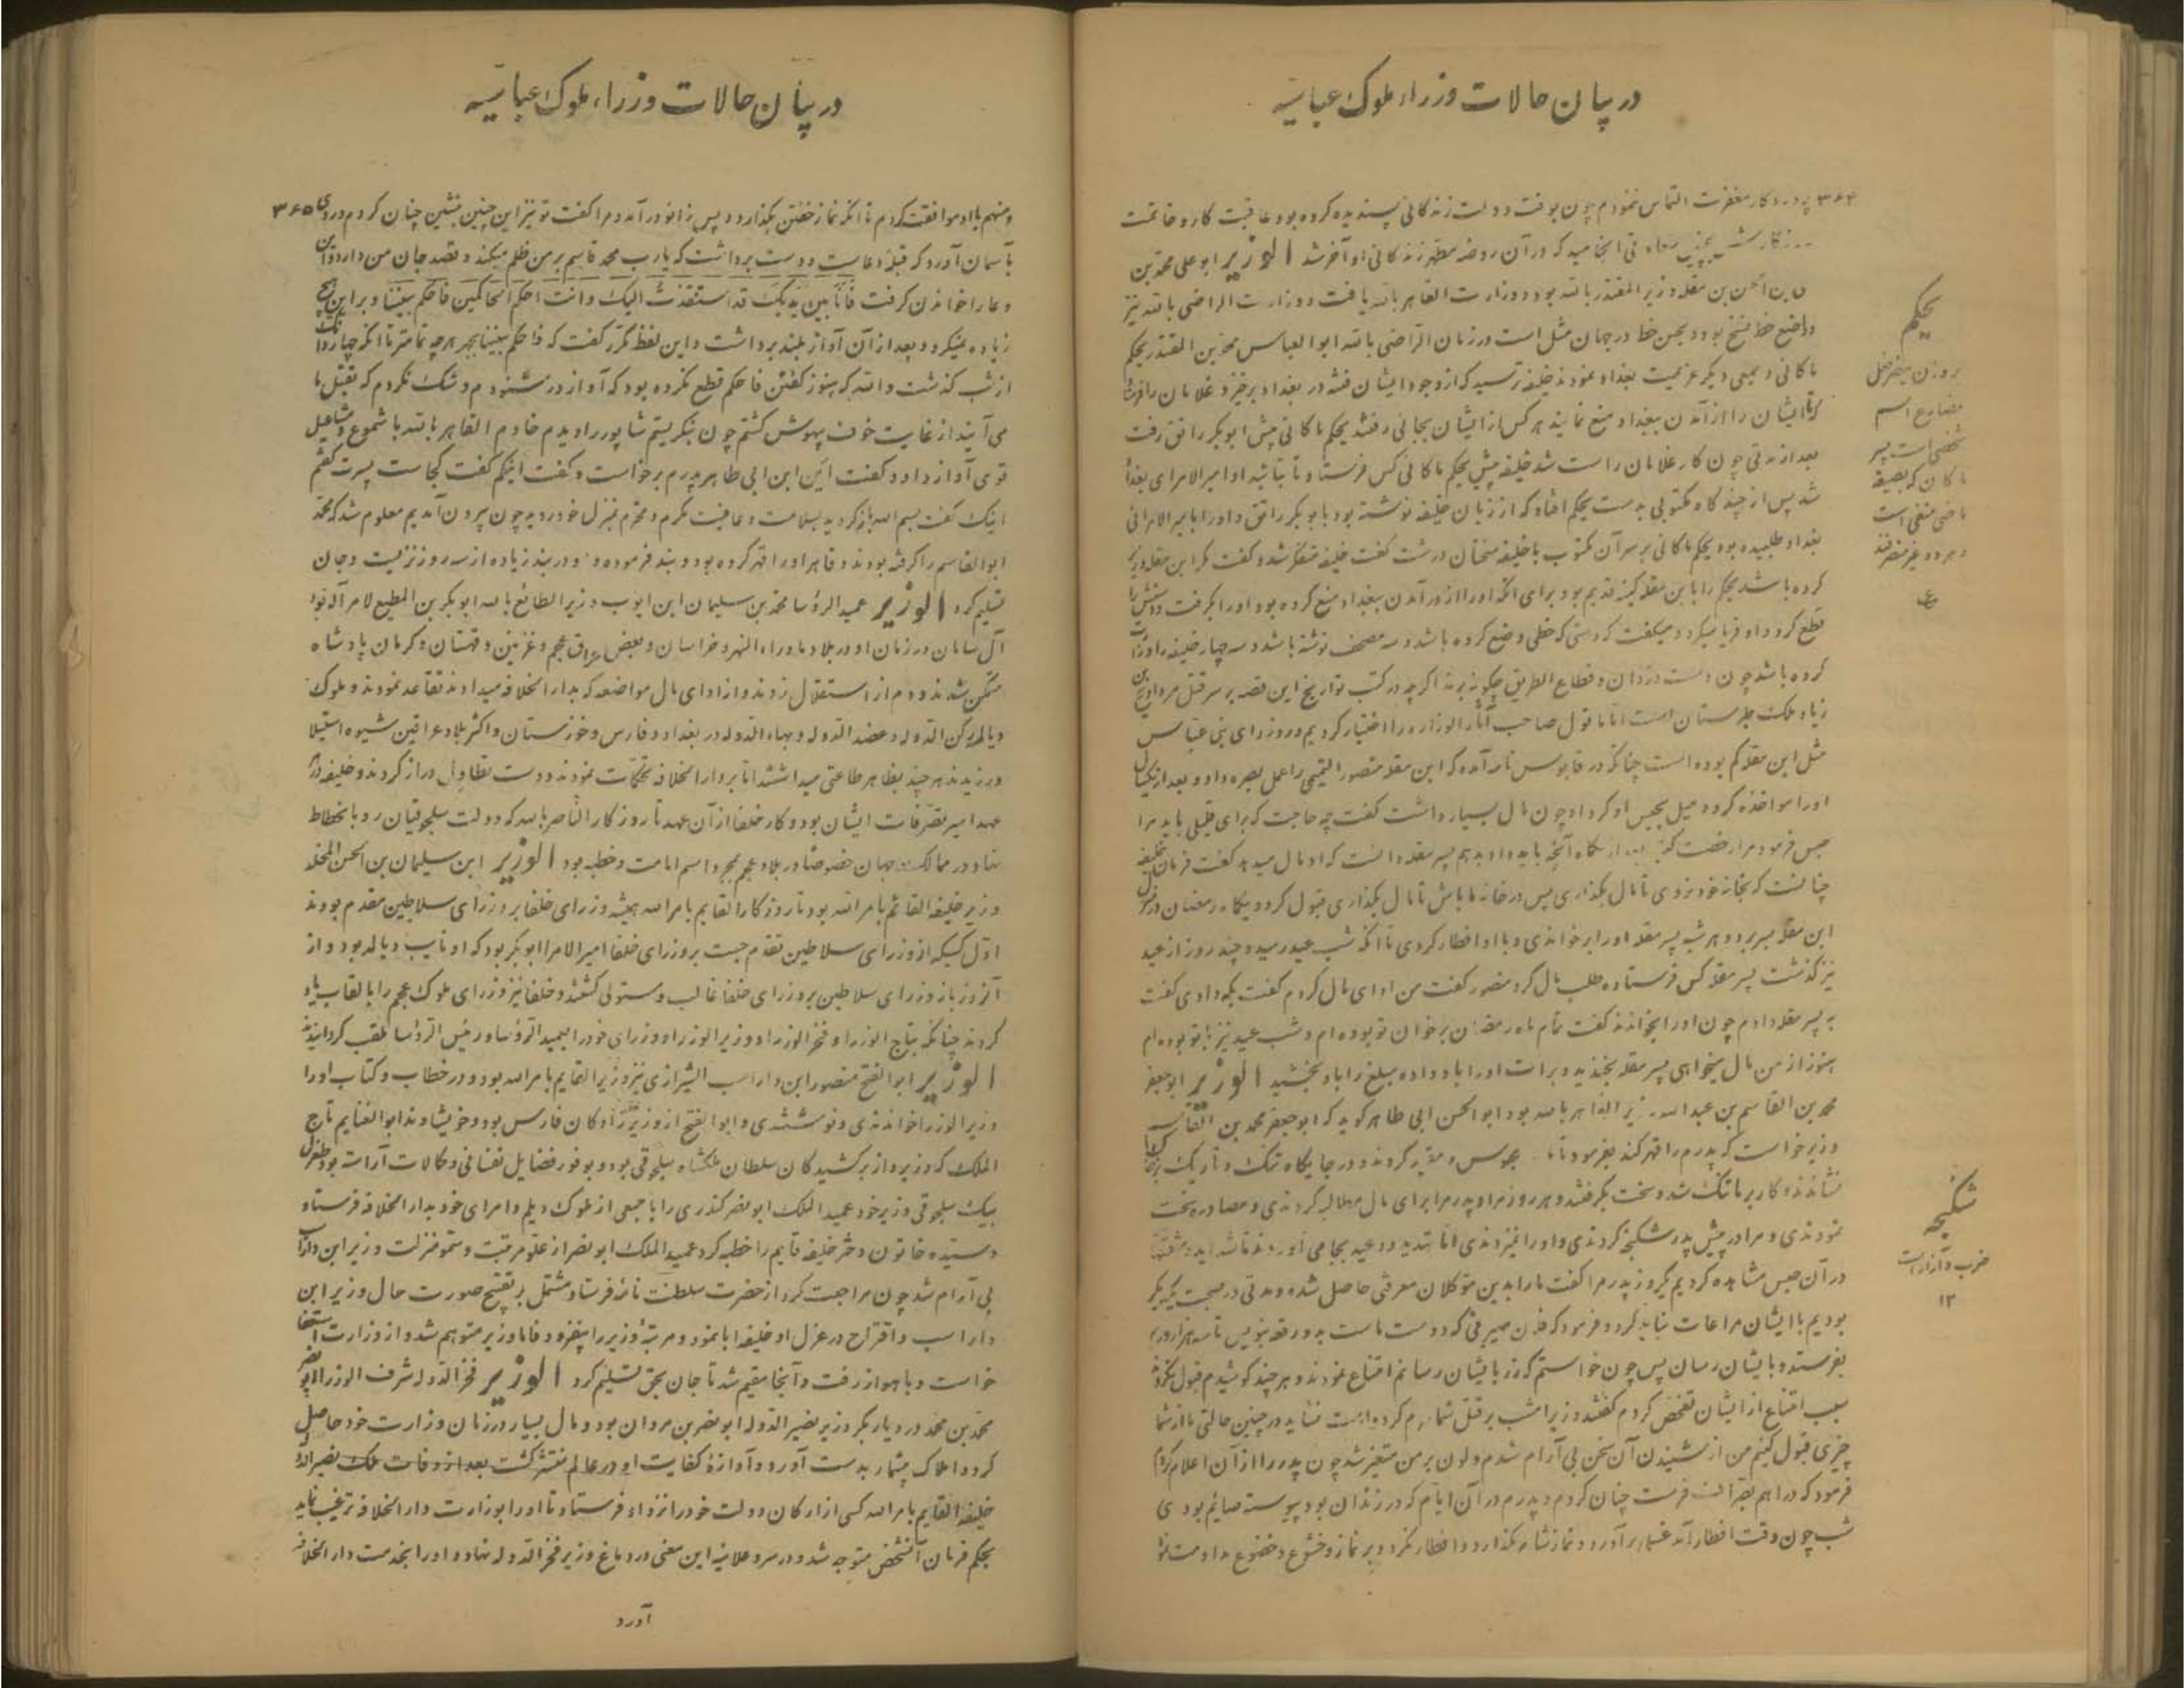 در بیان حالات وزراء ملوک عباسیه
۳۶۴
پروردگار مغفرت التماس نمودم چون بوقت دولت زندگانی پسندیده کرده بود عاقبت کار و خاتمت
انجامید که در آن روضه مطهر زندگانی او آخر شد الوزیر ابو علی محمد بن
بن مقله وزیر المقتدر بالله بود و وزارت القاهر بالله یافت و وزارت الراضی بالله نیز
واضع خط نسخ بود و بحسن خط در جهان مثل است در زمان الراضی بالله ابو العباس محمد بن المقتدر بجکم
ماکانی و جمعی دیگر عزیمت بغداد نمودند خلیفه ترسید که از وجود ایشان فتنه در بغداد برخیزد غلامان را فرستاد
تا ایشان را از آمدن ببغداد منع نمایند هر کس از ایشان بجائی رفتند بجکم ماکانی پیش ابوبکر رائق رفت
بعد از مدتی چون کار غلامان راست شد خلیفه پیش بجکم ماکانی کس فرستاد تا بیاید او امیر الامرای بغداد
شد پس از چند گاه مکتوبی بدست بجکم افتاد که از زبان خلیفه نوشته بود بابوبکر رائق و او را بامیر الامرائی
بغداد طلبیده بود بجکم ماکانی بر سر آن مکتوب با خلیفه سخنان درشت گفت خلیفه متفکر شد و گفت مگر ابن مقله
کرده باشد بجکم را با ابن مقله کینه قدیم بود برای آنکه او را از در آمدن ببغداد منع کرده بود او را بگرفت و دستش را
قطع کرد و او فریاد میکرد و میگفت که دستی که خطی وضع کرده باشد و سه مصحف نوشته باشد و سه چهار خلیفه را وزارت
کرده باشد چون دست دزدان و قطاع الطریق چگونه برند اگر چه در کتب تواریخ این قصه بر سر قتل مرداویج بن
زیاد ملک طبرستان است اما ما قول صاحب آثار الوزاره را اختیار کردیم و وزرای بنی عباس
مثل ابن مقله کم بوده است چنانکه در قابوس نامه آمده که ابن مقله منصور التمیمی را عمل بصره داد و بعد از یکسال
او را مواخذه کرده میل بحبس او کرد او چون مال بسیار داشت گفت چه حاجت که برای قلیلی باید مرا
حبس فرمود مرا رخصت آنچه باید داد بدهم پسر مقله دانست که او مال میدهد گفت فرمان خلیفه
چنانست که بخانه خود نروی تا مال بگذاری پس در خانه ما باش تا مال بگذاری قبول کرد و یکماه رمضان در منزل
ابن مقله بسر برد و هر شب پسر مقله او را بر خواندی و با او افطار کردی تا آنکه شب عید رسید و چند روز از عید
نیز گذشت پسر مقله کس فرستاده طلب مال کرد منصور گفت من ادای مال کردم گفت بکه دادی گفت
به پسر مقله دادم چون او را بخواندند گفت تمام ماه رمضان بر خوان تو بوده‌ام و شب عید نیز با تو بوده‌ام
هنوز از من مال میخواهی پسر مقله بخندید و برات او را باو داده مبلغ را باو بخشید الوزیر ابو جعفر
محمد بن القاسم بن عبد الله وزیر القاهر بالله بود ابو الحسن ابی طاهر گوید که ابو جعفر محمد بن القاسم
وزیر خواست که پدرم را قهر کند بفرمود تا محبوس و مقید کردند و در جایگاه تنگ و تاریک
نشاندند و کار بر ما تنگ شد و سخت بگرفتند و هر روز مرا و پدر مرا برای مال مطالبه کردندی و مصادره سخت
نمودندی و مرا در پیش پدر شکنجه کردندی و او را نیز زدندی اما تهدید و وعید بجا می‌آوردند
در آن حبس مشاهده کردیم یکروز پدر مرا گفت ما را بدین موکلان معرفتی حاصل شده و مدتی در صحبت یکدیگر
بودیم با ایشان مراعات نباید کرد و فرمود که فلان صیرفی که دوست ماست بدو رقعه بنویس تا سه هزار درم
بفرستد و بایشان رسان پس چون خواستم که زر بایشان رسانم امتناع نمودند و هر چند کوشیدم قبول نکردند
سبب امتناع از ایشان تفحص کردم گفتند وزیر امشب بر قتل شما کرده است نشاید در چنین حالتی ما از شما
چیزی قبول کنیم من از شنیدن آن سخن بی آرام شدم و لون بر من متغیر شد چون پدر را از آن اعلام کردم
فرمود که دراهم بصراف فرست چنان کردم و پدرم در آن ایام که در زندان بود پیوسته صایم بودی
شب چون وقت افطار آمد غسل بر آورد و نماز شام بگذارد و افطار نکرد و بر نماز و خشوع و خضوع مداومت نمود
بجکم
بر وزن
مضارع اسم
شخصی است پسر
ماکان که بصیغه
ماضی منفی است
و هر دو غیر منصرفند
شکنجه
ضرب و آزار است
۱۲
در بیان حالات وزراء ملوک عباسیه
۳۶۵
و منهم با او موافقت کردم تا آنکه نماز خفتن بگذارد و پس زانو در آمد و مرا گفت تو نیز این چنین بنشین چنان کردم و روی
بآسمان آورد که قبله دعاست و دست برداشت که یارب محمد قاسم بر من ظلم میکند و قصد جان من دارد و این
دعا را خواندن گرفت فأنا بین یدیک قد استغثت الیک و انت احکم الحاکمین فاحکم بیننا و بر این هیچ
زیاده نمیکرد و بعد از آن آواز بلند برداشت و این لفظ مکرر گفت که فاحکم بیننا بجهر هر چه تمامتر تا آنکه چهار دانگ
از شب گذشت والله که هنوز گفتن فاحکم قطع نکرده بود که آواز در شنودم و شک نکردم که بقتل ما
می‌آیند از غایت خوف بیهوش گشتم چون نگریستم شاپور را دیدم خادم القاهر بالله با شموع و مشاعیل
قوی آواز داد و گفت این ابن ابی طاهر پدرم برخواست و گفت اینکم گفت کجاست پسرت گفتم
اینک گفت بسم الله بازگردید بسلامت و عافیت مکرم و محترم بمنزل خود روید چون بیرون آمدیم معلوم شد که محمد
ابو القاسم را گرفته بودند و قاهر او را قهر کرده بود و بند فرموده و در بند زیاده از سه روز نزیست و جان
تسلیم کرد الوزیر عمید الرؤسا محمد بن سلیمان ابن ایوب وزیر الطائع بالله ابو بکر بن المطیع لامر الله بود
آل سامان در زمان او در بلاد ماوراء النهر و خراسان و بعض عراق عجم و غزنین و قهستان و کرمان پادشاه
متمکن شدند و دم از استقلال زدند و از ادای مال مواضعه که بدار الخلافه میدادند تقاعد نمودند و ملوک
دیالمه رکن الدوله و عضد الدوله و بهاء الدوله در بغداد و فارس و خوزستان و اکثر بلاد عراقین شیوه استیلا
ورزیدند هر چند بظاهر طاعتی میداشتند اما بر دار الخلافه تحکمات نمودند و دست تطاول دراز کردند و خلیفه در
عهد اسیر تصرفات ایشان بود و کار خلفا از آن عهد تا روزگار الناصر بالله که دولت سلجوقیان رو بانحطاط
نهاد در ممالک جهان خصوصا در بلاد عجم بمجرد اسم امامت و خطبه بود الوزیر ابن سلیمان بن الحسن المخلد
وزیر خلیفه القائم بامر الله بود تا روزگار القایم بامر الله همیشه وزرای خلفا بر وزرای سلاطین مقدم بودند
اول کسیکه از وزرای سلاطین تقدم جست بر وزرای خلفا امیر الامرا ابو بکر بود که او نایب دیالمه بود و از
آنروز باز وزرای سلاطین بر وزرای خلفا غالب و مستولی گشتند و خلفا نیز وزرای ملوک عجم را بالقاب یاد
کردند چنانکه بتاج الوزرا و فخر الوزرا و وزیر الوزرا و وزرای خود را بعمید الرؤسا و رئیس الرؤسا ملقب گردانیدند
الوزیر ابو الفتح منصور ابن داراسب الشیرازی نیز وزیر القایم بامر الله بود و در خطاب و کتاب او را
وزیر الوزرا خواندندی و نوشتندی و ابو الفتح از وزیرزادگان فارس بود و خویشاوند ابو الغنایم تاج
الملک که وزیر و از برکشیدگان سلطان ملکشاه سلجوقی بود و بوفور فضایل نفسانی و کمالات آراسته بود طغرل
بیک سلجوقی وزیر خود عمید الملک ابو نصر کندری را با جمعی از ملوک دیلم و امرای خود بدار الخلافه فرستاد
و سیده خاتون دختر خلیفه قایم را خطبه کرد عمید الملک ابو نصر از علو مرتبت و سمو منزلت وزیر ابن داراسب
بی آرام شد چون مراجعت کرد از حضرت سلطنت نامه فرستاد مشتمل بر تقبیح صورت حال وزیر ابن
داراسب و اقتراح در عزل او خلیفه ابا نمود و مرتبه وزیر را بیفزود فاما وزیر متوهم شد و از وزارت استعفا
خواست و باهواز رفت و آنجا مقیم شد تا جان بحق تسلیم کرد الوزیر فخر الدوله شرف الوزرا ابو نصر
محمد بن محمد در دیار بکر وزیر نصیر الدوله ابو نصر بن مروان بود و مال بسیار در زمان وزارت خود حاصل
کرد و املاک بیشمار بدست آورد و آوازه کفایت او در عالم منتشر گشت بعد از وفات ملک نصیر الدوله
خلیفه القایم بامر الله کسی از ارکان دولت خود را نزد او فرستاد تا او را بوزارت دار الخلافه ترغیب نماید
بحکم فرمان آنشخص متوجه شد و در سر و علانیه این معنی در دماغ وزیر فخر الدوله نهاد و او را بخدمت دار الخلافه
آورد